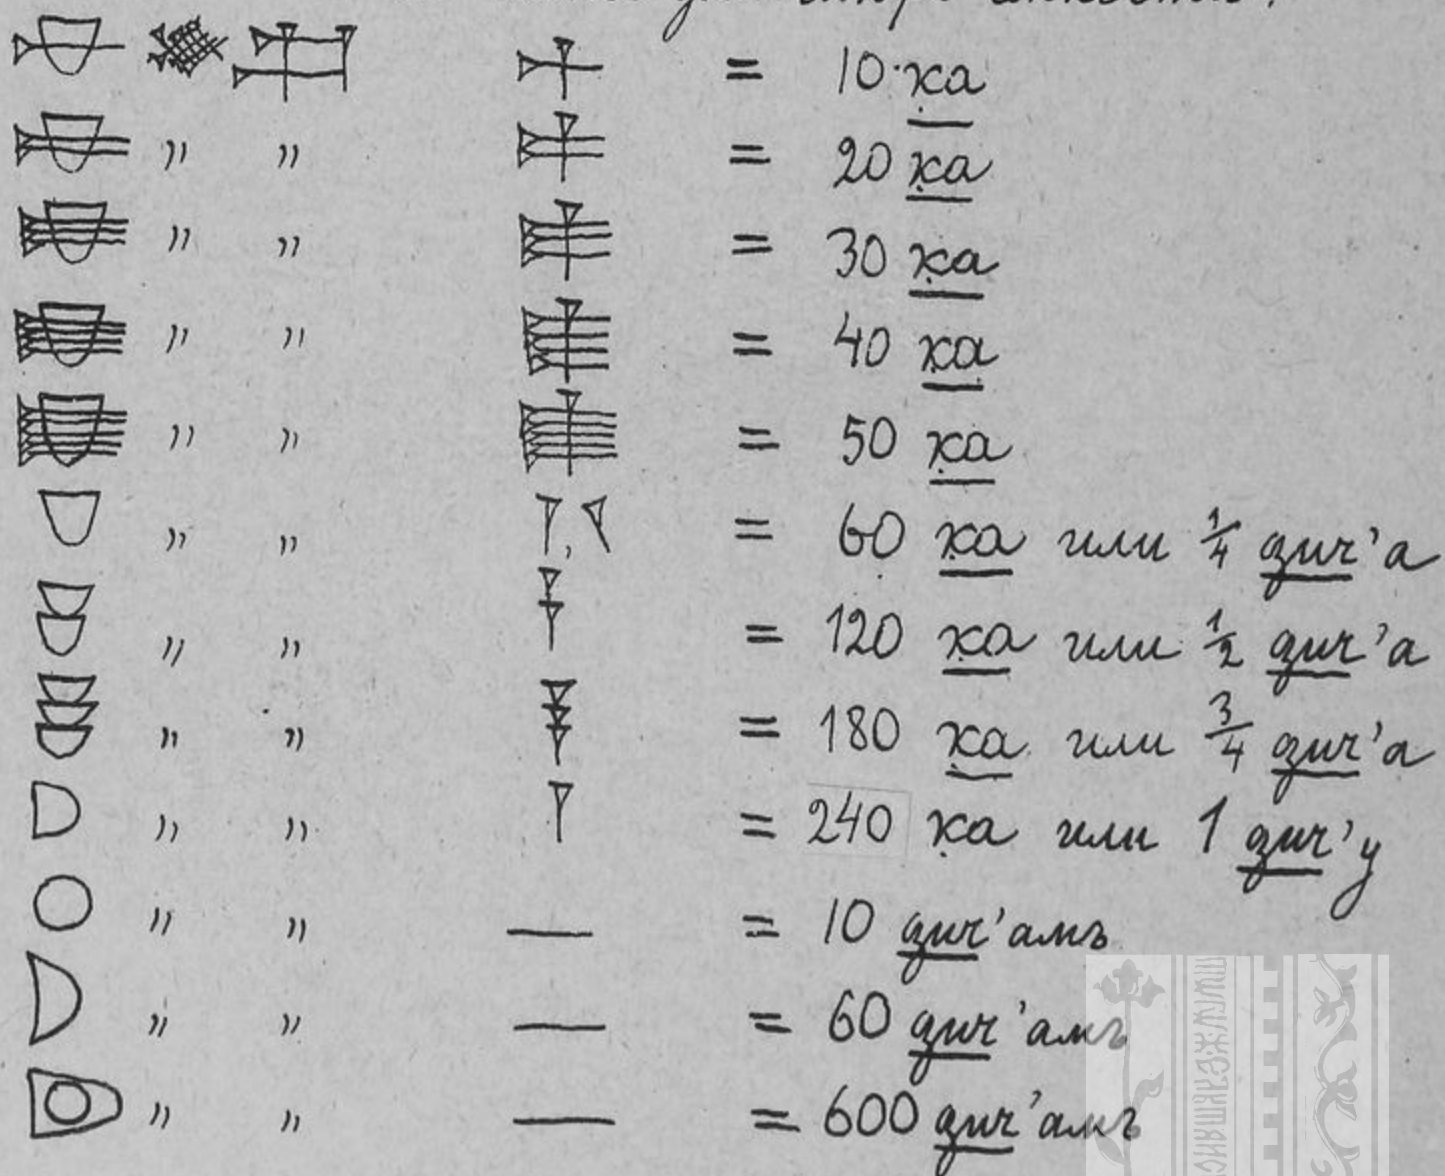 = 10 ḳa
" " = 20 ḳa
" " = 30 ḳa
" " = 40 ḳa
" " = 50 ḳa
" " , = 60 ḳa или 1/4 gur'а
" " = 120 ḳa или 1/2 gur'а
" " = 180 ḳa или 3/4 gur'а
" " = 240 ḳa или 1 gur'у
" " — = 10 gur'амъ
" " — = 60 gur'амъ
" " — = 600 gur'амъ